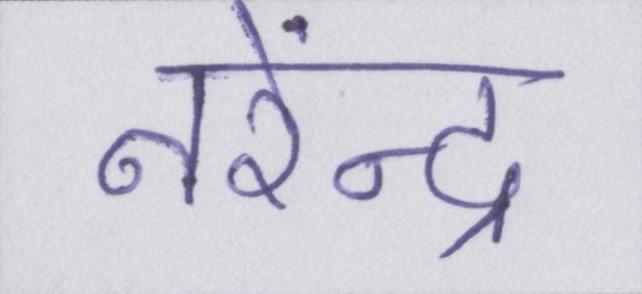 नरेंन्द्र